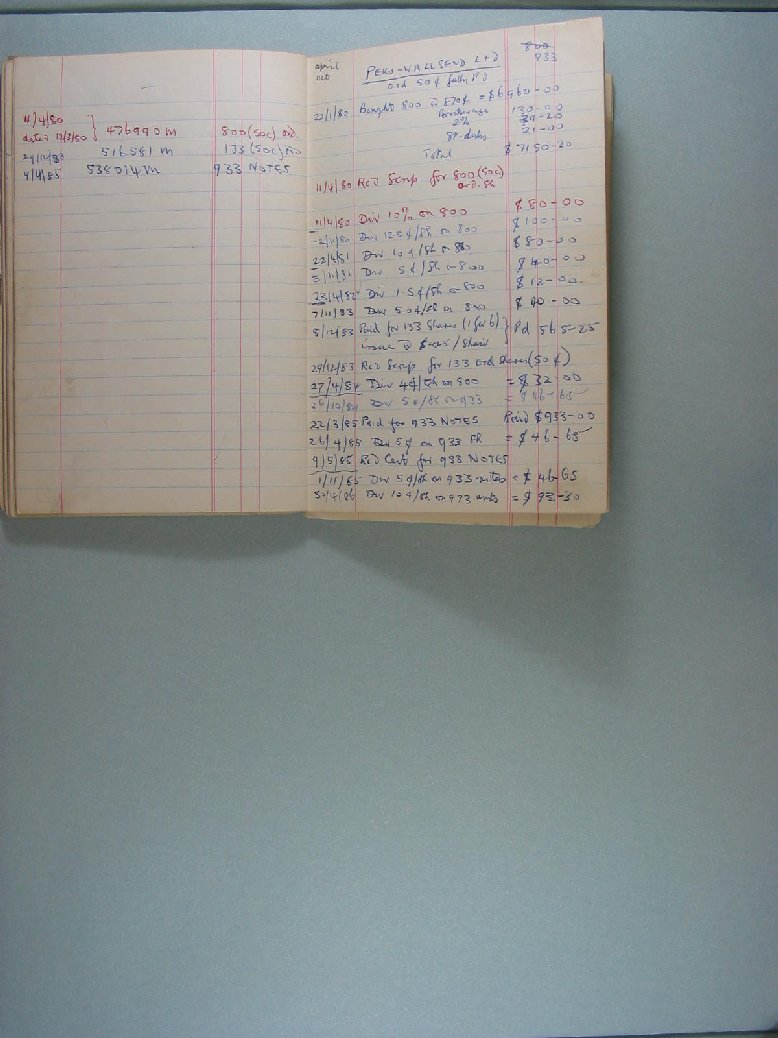 11/4/80
dated 12/3/80 } 476990 M 800 (50c) ord.
29/12/83 516581 M 133 (50c)
9/4/85 538014 M 933 NOTES
april
oct
PEKO-WALLSEND LTD
ord 50¢ fully Pd
800
933
22/1/80 Bought 800 @ 870¢ = $6960-00
Brokerage 130-00
2% 39-20
St. duty 21-00
Total $7150-20
11/4/80 Rec'd Scrip for 800 (50c)
ord. sh
11/4/80 Div 10% on 800 $80-00
/11/80 Div 12.5¢/Sh on 800 $100-00
22/4/81 Div 10¢/Sh on 800 $80-00
/11/81 Div 5¢/Sh on 800 $40-00
23/4/82 Div 1.5¢/Sh on 800 $12-00
7/11/83 Div 5.0¢/Sh on 800 $40-00
8/12/83 Paid for 133 Shares (1 for 6) } Pd 565-25
issue @ $4.25/Share
29/12/83 Rec'd Scrip for 133 ord Shares (50¢)
27/4/84 Div 4¢/Sh on 800 = $32-00
26/10/84 Div 5¢/Sh on 933 = $46-65
22/3/85 Paid for 933 NOTES Paid $933-00
26/4/85 Div 5¢ on 933 Sh = $46-65
9/5/85 Rec'd Cert for 933 NOTES
1/11/85 Div 5¢/Sh on 933 units = $46-65
30/4/86 Div 10¢/Sh on 933 units = $93-30